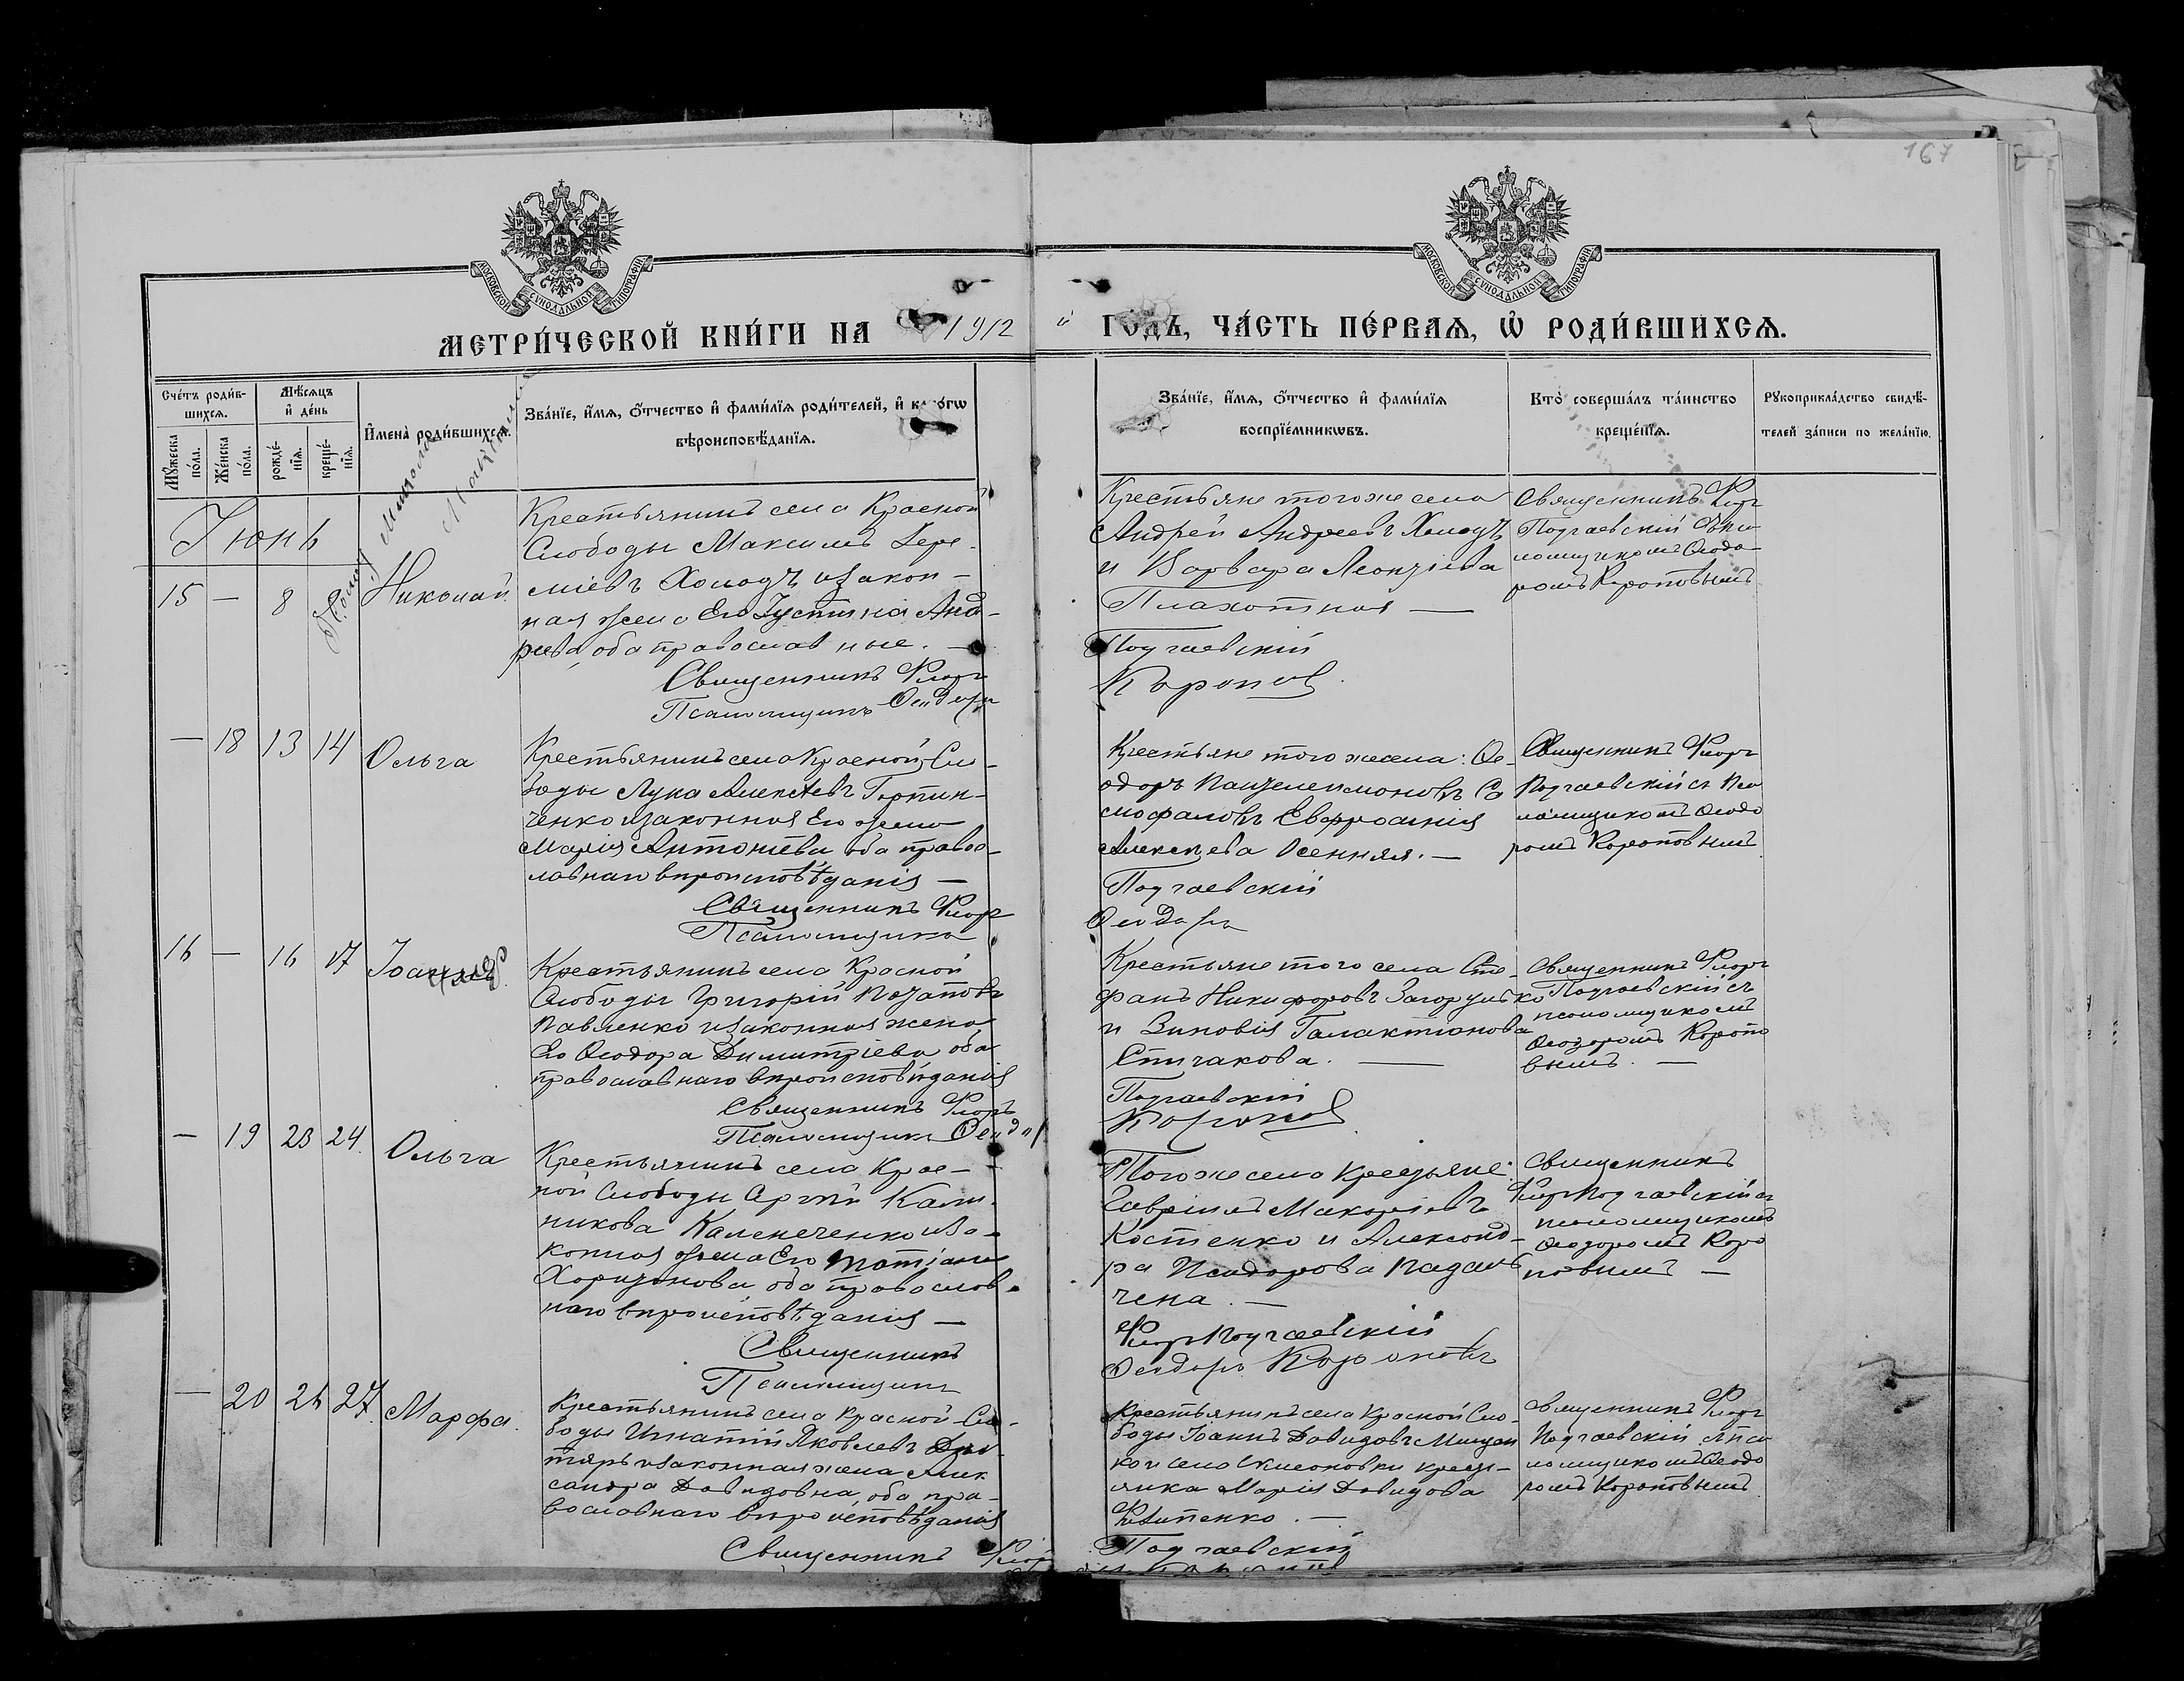 167
МОСКОВСКОЙ СѴНОДАЛЬНОЙ ТИПОГРАФІИ
МОСКОВСКОЙ СѴНОДАЛЬНОЙ ТИПОГРАФІИ
МЕТРИ́ЧЕСКОЙ КНИ́ГИ НА 1912 й ГО́ДЪ, ЧА́СТЬ ПЕ́РВАѦ, Ѡ҆ РОДИ́ВШИХСѦ.
Сче́тъ роди́в-
шихсѧ.
Мѣ́сѧцъ
и҆ де́нь
Мꙋ́жеска по́ла.
Же́нска по́ла.
рожде́-
нїѧ.
креще́-
нїѧ.
И҆мена̀ роди́вшихсѧ.
Зва́нїе, и҆́мѧ, ѻ҆́тчество и҆ фами́лїѧ роди́телей, и҆ како́гѡ
вѣроисповѣ́данїѧ.
Зва́нїе, и҆́мѧ, ѻ҆́тчество и҆ фами́лїѧ
воспрїе́мникѡвъ.
Кто̀ соверша́лъ та́инство
креще́нїѧ.
Рꙋкоприкла́дство свидѣ́-
телей за́писи по жела́нїю.
Іюнь
15 — 8 9 Николай
Холод Микола
Крестьянинъ села Красной
Слободы Максимъ Iере-
міевъ Холодъ и закон-
ная жена Его Іустина Анд-
реева, оба православные. —
Священникъ Флоръ
Псаломщикъ Ѳеодоръ
Крестьяне того же села
Андрей Андреевъ Холодъ
и Варвара Леонтіева
Плахотная —
Подгаевскій
Коропов
Священникъ Флоръ
Подгаевскій съ пса
ломщикомъ Ѳеодо
ромъ Коротовымъ
— 18 13 14 Ольга
Крестьянинъ села Красной Сло-
боды Лука Алексѣевъ Горпин-
ченко и законная Его жена
Марія Антоніева оба правос-
лавнаго вѣроисповѣданія —
Священникъ Флоръ
Псаломщикъ
Крестьяне того же села: Ѳе-
одоръ Пантелеимоновъ Са
мофаловъ Евфросинія
Алексѣева Осенняя. —
Подгаевскій
Ѳеодоръ
Священникъ Флоръ
Подгаевскій съ Пса
ломщикомъ Ѳеодо
ромъ Коротовымъ
16 — 16 17 Іоаннъ
Крестьянинъ села Красной
Слободы Григорій Потаповъ
Павленко и законная жена
Его Ѳеодора Димитріева оба
православнаго вѣроисповѣданія
Священникъ Флоръ
Псаломщикъ Ѳеодоръ
Крестьяне того села Сте-
фанъ Никифоровъ Загорулько
и Зиновія Галактіонова
Спичакова. —
Подгаевскій
Коропов
Священникъ Флоръ
Подгаевскій съ
псаломщикомъ
Ѳеодоромъ Корото
вымъ. —
— 19 23 24 Ольга
Крестьянинъ села Крас-
ной Слободы Сергѣй Кали-
никова Каленеченко и за-
конная жена Его Татіана
Харитонова оба православ-
наго вѣроисповѣданія —
Священникъ
Псаломщикъ
Того же села Крестьяне:
Гавріилъ Макаріевъ
Костенко и Александ-
ра Исидорова
чена. —
Флоръ Подгаевскій
Ѳеодоръ Короповъ
Священникъ
Флоръ Подгаевскій съ
псаломщикомъ
Ѳеодоромъ Коро
повымъ —
— 20 26 27 Марфа.
Крестьянинъ села Красной Сло-
боды Игнатій Яковлевъ Дех-
тярь и законная жена Алек
сандра Давидовна, оба пра-
вославнаго вѣроисповѣданія
Священникъ Флор
Крестьянинъ села Красной Сло-
боды Іоаннъ Давидовъ Мищен
ко и села крестьянка
Марія Давидова
Филипенко. —
Подгаевскій
Священникъ Флоръ
Подгаевскій съ пса
ломщикомъ Ѳеодо
ромъ Коротовымъ